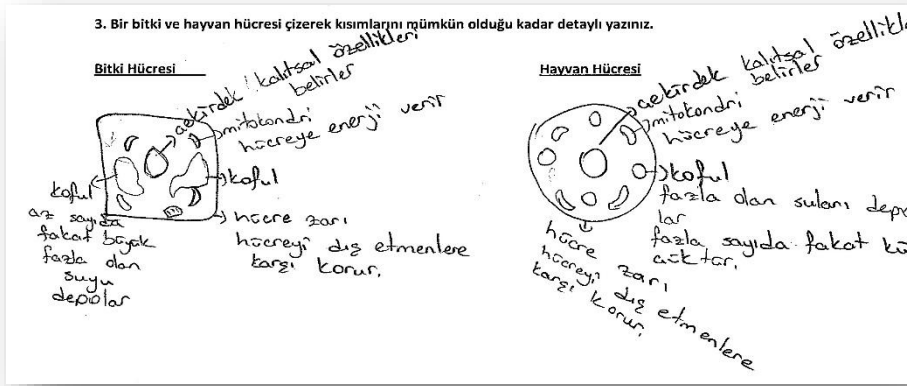 3. Bir bitki ve hayvan hücresi çizerek kısımlarını mümkün olduğu kadar detaylı yazınız.
Bitki Hücresi
çekirdek kalıtsal özellikleri
belirler
mitokondri
hücreye enerji verir
koful
koful
az sayıda
fakat büyük
fazla olan
suyu
depolar
hücre zarı
hücreyi dış etmenlere
karşı korur.
Hayvan Hücresi
çekirdek kalıtsal
belirler
mitokondri
hücreye enerji verir
koful
fazla olan suları
lar
fazla sayıda fakat
hücre zarı
hücreyi dış etmenlere
karşı korur.